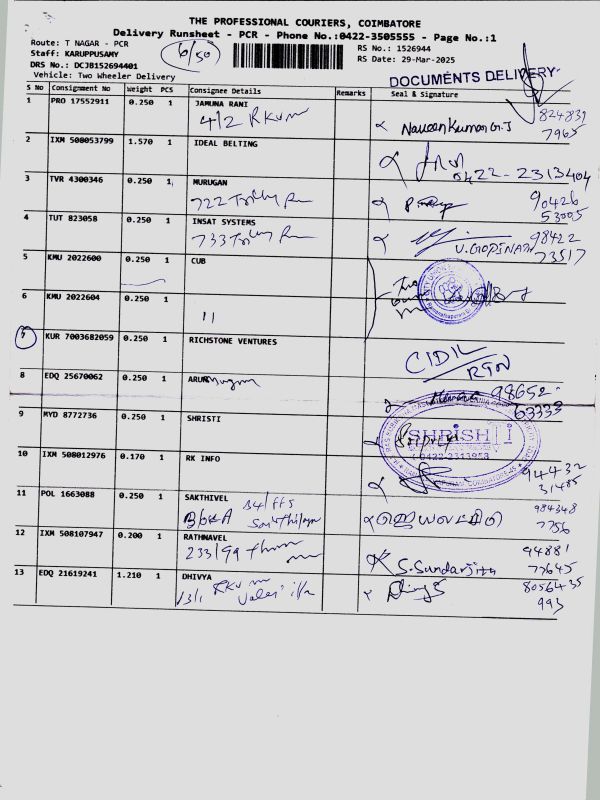 THE PROFESSIONAL COURIERS, COIMBATORE
Delivery Runsheet - PCR - Phone No.:0422-3505555 - Page No.:1
Route: T NAGAR - PCR
Staff: KARUPPUSAMY
DRS No.: DCJB152694401
Vehicle: Two Wheeler Delivery
RS No.: 1526944
RS Date: 29-Mar-2025
DOCUMENTS DELIVERY
S No Consignment No Weight PCS Consignee Details Remarks Seal & Signature
1 PRO 17552911 0.250 1 JAMUNA RANI
4/2 RKum
Naveen Kumar G.J 824831
7965
2 IXM 508053799 1.570 1 IDEAL BELTING
0422-2313404
3 TVR 4300346 0.250 1 MURUGAN
722 90426
53005
4 TUT 823058 0.250 1 INSAT SYSTEMS
733 V. GOPINATH 98422
73517
5 KMU 2022600 0.250 1 CUB
6 KMU 2022604 0.250 1
11
7 KUR 7003682059 0.250 1 RICHSTONE VENTURES
CIDIL
RTN
8 EDQ 25670062 0.250 1 ARUN
98652-
63333
9 MYD 8772736 0.250 1 SHRISTI
SHRISHTI
0422-2313953
10 IXM 508012976 0.170 1 RK INFO
94432
31485
11 POL 1663088 0.250 1 SAKTHIVEL
B4/FF5
984348
7756
12 IXM 508107947 0.200 1 RATHNAVEL
233/99
K S. Sundarjith 94881
77645
13 EDQ 21619241 1.210 1 DHIVYA
13/1 RKum
8056435
993